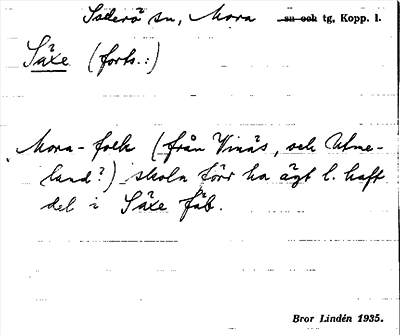 Sollerö   sn,   Mora   sn och tg, Kopp. l.
Säxe   (forts.:)
Mora-folk (från Vinäs, och Utme-
land?) skola förr ha ägt l. haft
del i Säxe fäb.
Bror Lindén 1935.